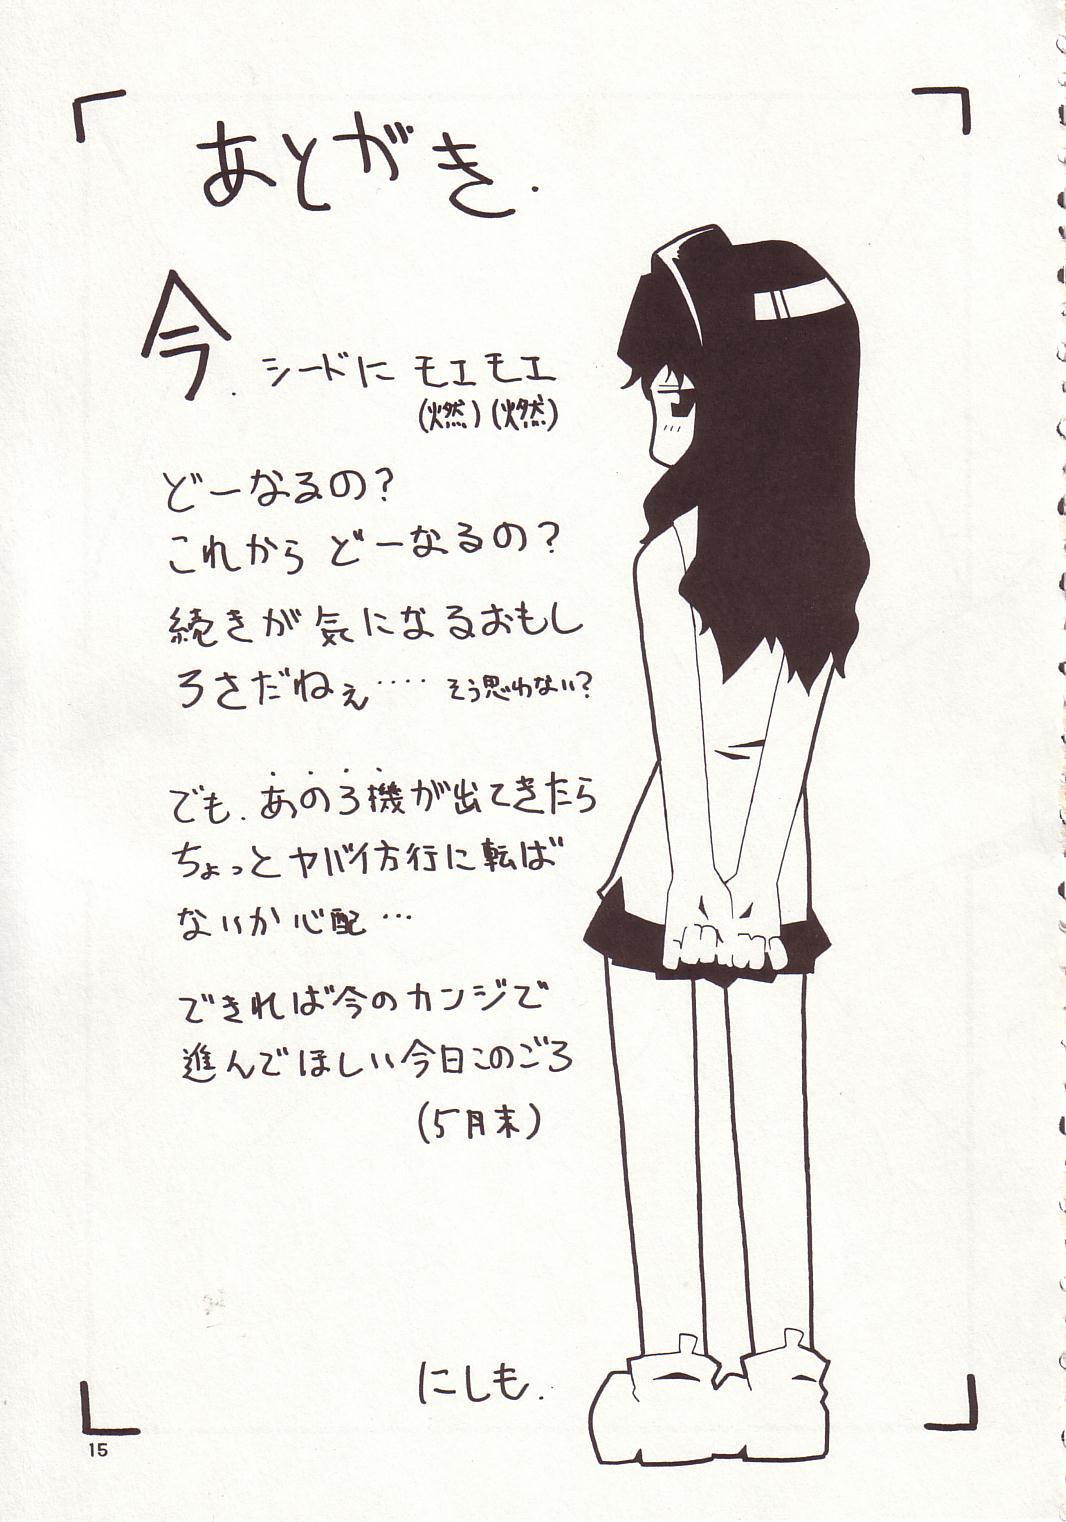 あとがき.
今. シードに モエモエ
(燃)(燃)
どーなるの?
これから どーなるの?
続きが気になるおもし
ろさだねぇ‥‥ そう思わない?
でも. あの3機が出てきたら
ちょっとヤバイ方行に転ば
ないか心配…
できれば今のカンジで
進んでほしい今日このごろ
(5月末)
にしも.
15